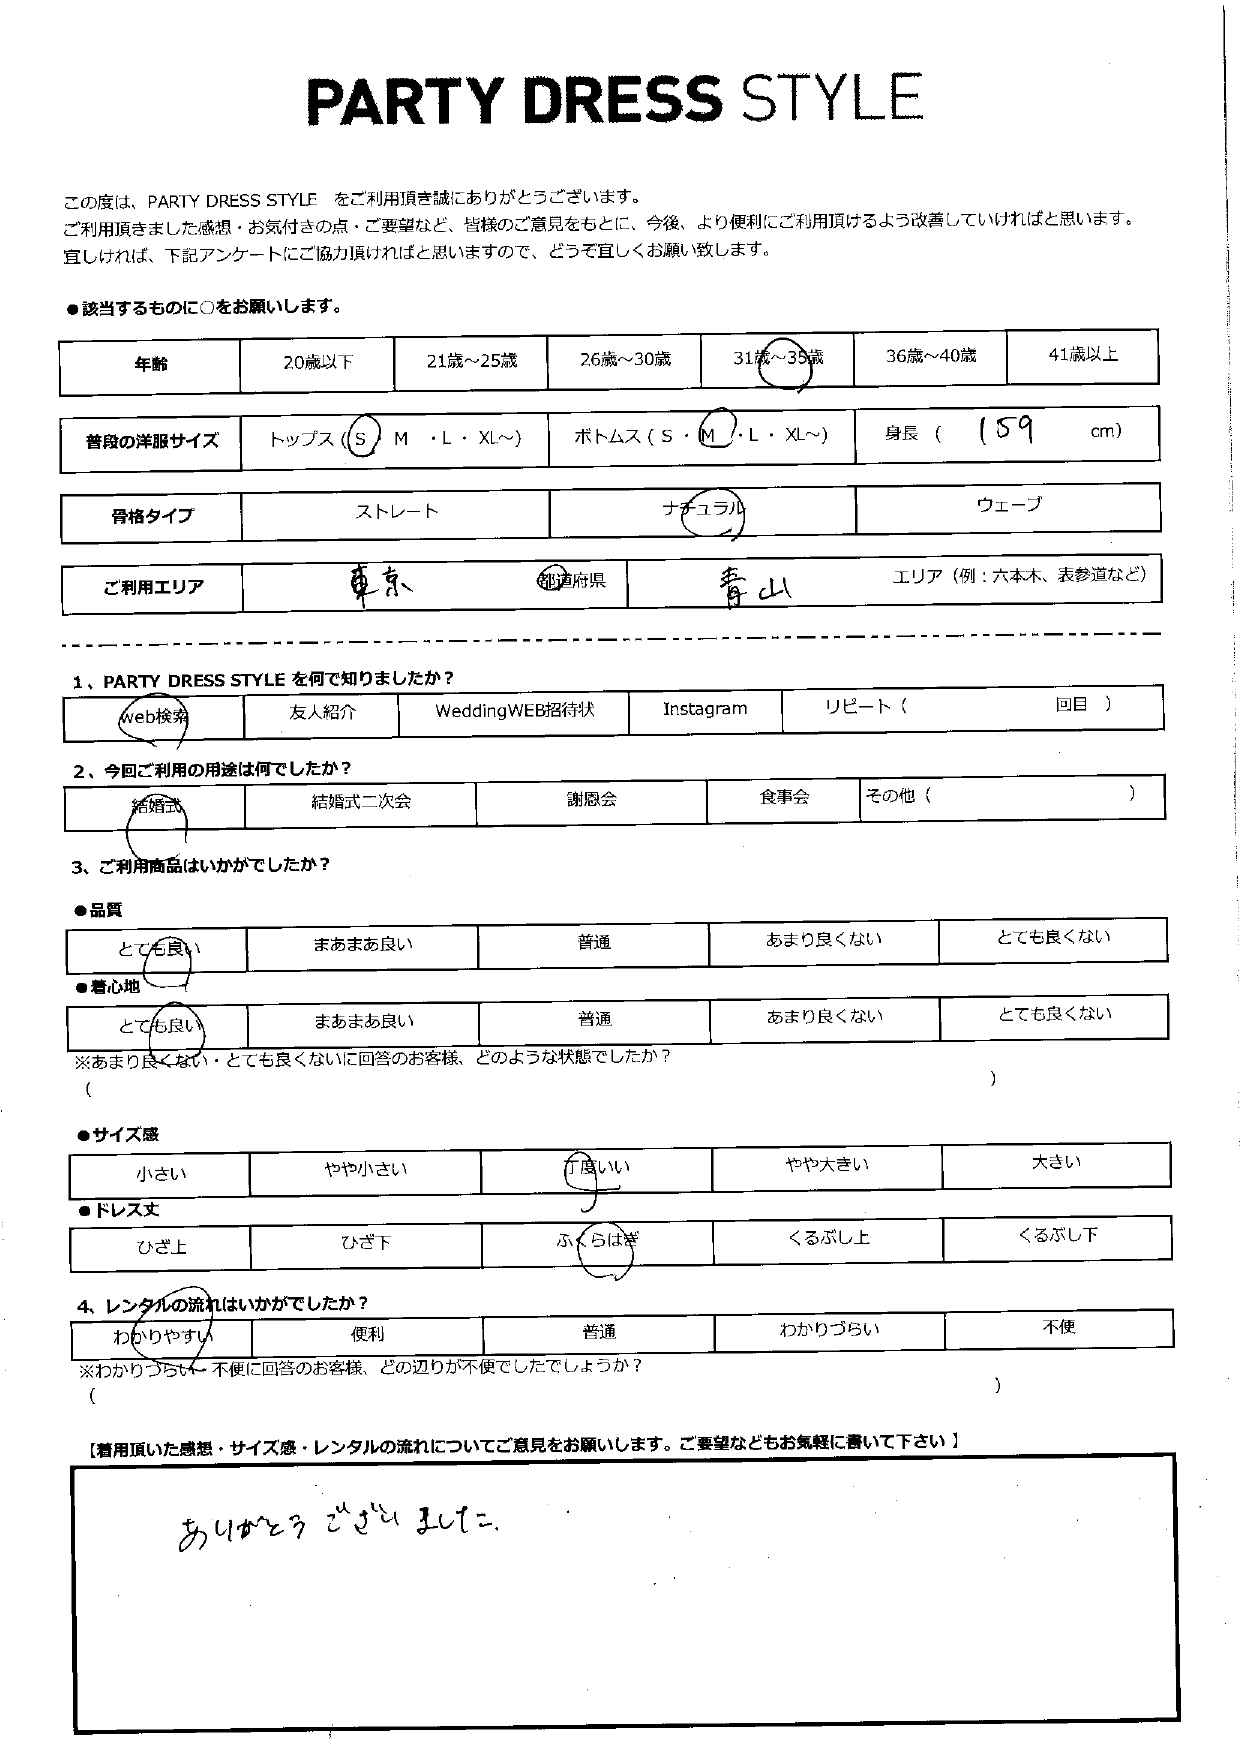 PARTY DRESS STYLE
この度は、PARTY DRESS STYLE をご利用頂き誠にありがとうございます。
ご利用頂きました感想・お気付きの点・ご要望など、皆様のご意見をもとに、今後、より便利にご利用頂けるよう改善していければと思います。
宜しければ、下記アンケートにご協力頂ければと思いますので、どうぞ宜しくお願い致します。
●該当するものに○をお願いします。
年齢 20歳以下 21歳～25歳 26歳～30歳 31歳～35歳 36歳～40歳 41歳以上
普段の洋服サイズ トップス（S ・ M ・L ・ XL～） ボトムス（ S ・ M ・L ・ XL～） 身長 （ 159 cm）
骨格タイプ ストレート ナチュラル ウェーブ
ご利用エリア 東京 都道府県 青山 エリア（例：六本木、表参道など）
1、PARTY DRESS STYLE を何で知りましたか？
web検索 友人紹介 WeddingWEB招待状 Instagram リピート（ 回目 ）
2、今回ご利用の用途は何でしたか？
結婚式 結婚式二次会 謝恩会 食事会 その他（ ）
3、ご利用商品はいかがでしたか？
●品質
とても良い まあまあ良い 普通 あまり良くない とても良くない
●着心地
とても良い まあまあ良い 普通 あまり良くない とても良くない
※あまり良くない・とても良くないに回答のお客様、どのような状態でしたか？
（ ）
●サイズ感
小さい やや小さい 丁度いい やや大きい 大きい
●ドレス丈
ひざ上 ひざ下 ふくらはぎ くるぶし上 くるぶし下
4、レンタルの流れはいかがでしたか？
わかりやすい 便利 普通 わかりづらい 不便
※わかりづらい・不便に回答のお客様、どの辺りが不便でしたでしょうか？
（ ）
【着用頂いた感想・サイズ感・レンタルの流れについてご意見をお願いします。ご要望などもお気軽に書いて下さい 】
ありがとうございました。